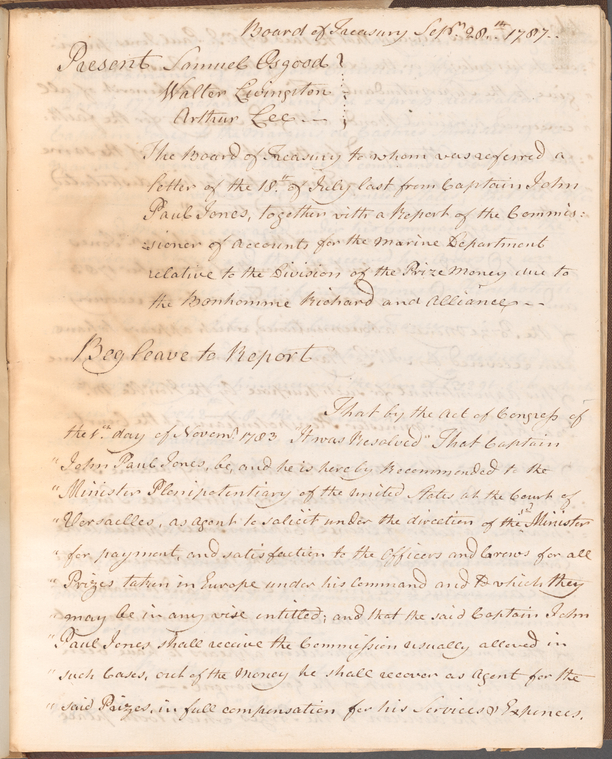 Board of Treasury Sepr. 28.th 1787.
Present Samuel Osgood
Walter Livingston
Arthur Lee
The Board of Treasury to whom was referred a
letter of the 18.th of July last from Captain John
Paul Jones, together with a Report of the Commis:
:sioner of Accounts for the Marine Department
relative to the Division of the Prize Money due to
the Bonhomme Richard and Alliance,
Beg leave to Report
That by the Act of Congress of
the 1.st day of Novemr. 1783 It was Resolved "That Captain
"John Paul Jones, be, and he is hereby Recommended to the
"Minister Plenipotentiary of the United States at the Court of
"Versailles, as Agent to solicit under the direction of the sd. Minister
"for payment, and satisfaction to the Officers and Crews for all
"Prizes taken in Europe under his Command and to which they
"may be in any wise entitled; and that the said Captain John
"Paul Jones shall receive the Commission usually allowed in
"such Cases, out of the Money he shall recover as Agent for the
"said Prizes, in full compensation for his Services & Expences.